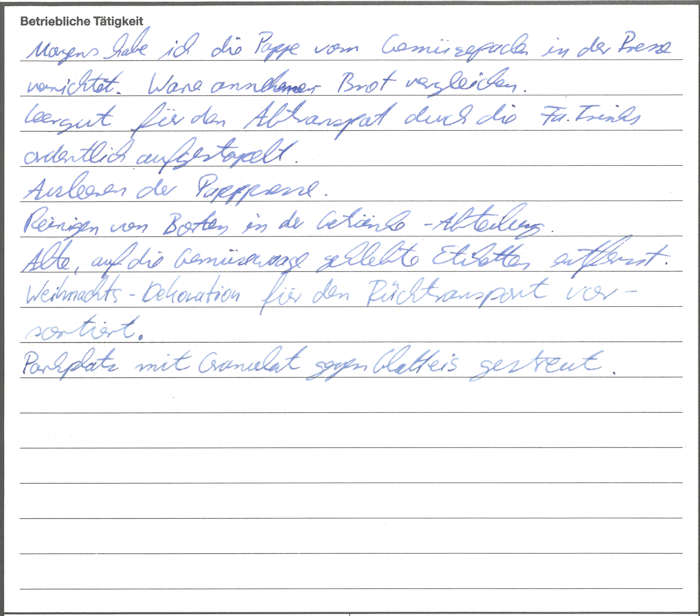 Betriebliche Tätigkeit
Morgens habe ich die Pappe vom Gemüsepacken in der Presse
vernichtet. Ware annehmen Brot vergleichen.
Leergut für den Abtransport durch die Fa. Trinks
ordentlich aufgestapelt.
Ausleeren der Papppresse.
Reinigen von Borten in der Getränke-Abteilung.
Alte, auf die Gemüsewaage geklebte Etiketten entfernt.
Weihnachts-Dekoration für den Rücktransport vor-
sortiert.
Parkplatz mit Granulat gegen Glatteis gestreut.